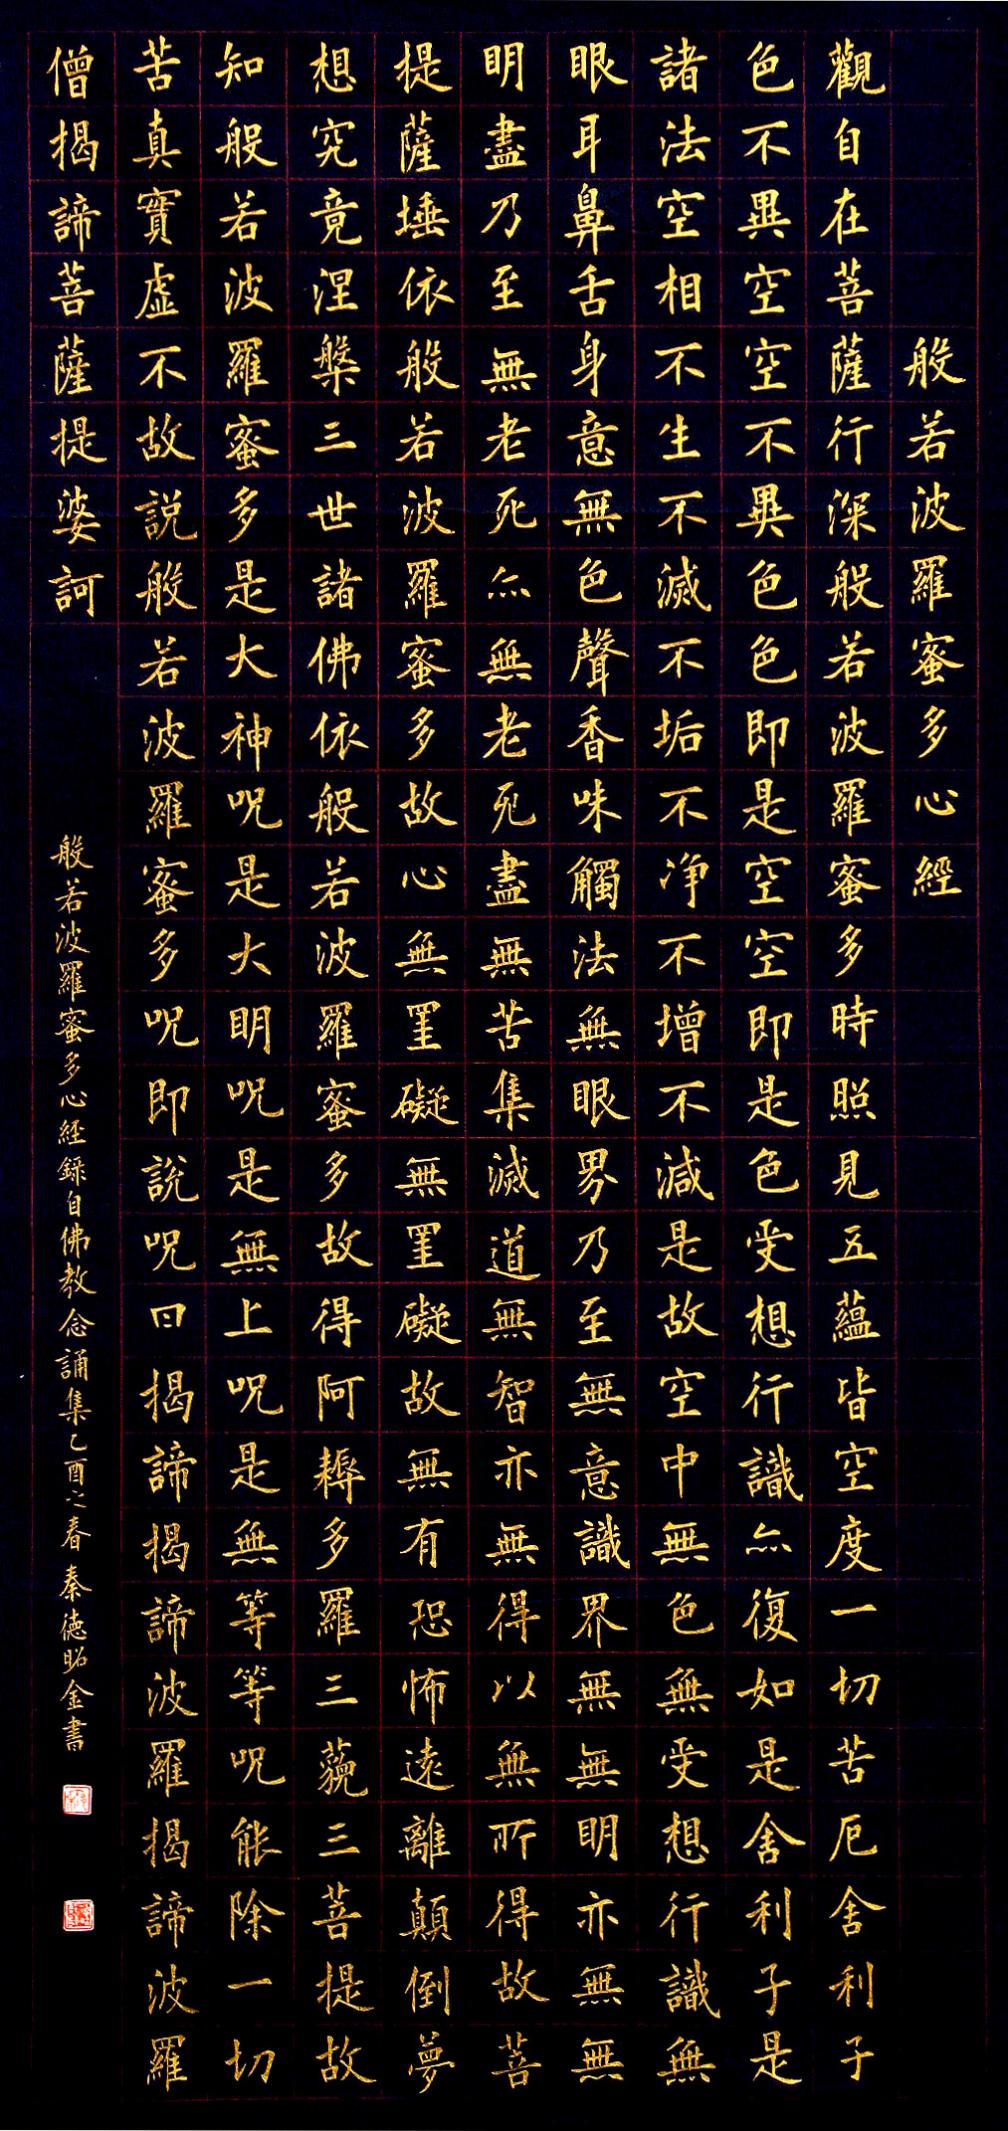 般若波羅蜜多心經
觀自在菩薩行深般若波羅蜜多時照見五蘊皆空度一切苦厄舍利子
色不異空空不異色色即是空空即是色受想行識亦復如是舍利子是
諸法空相不生不滅不垢不净不增不減是故空中無色無受想行識無
眼耳鼻舌身意無色聲香味觸法無眼界乃至無意識界無無明亦無無
明盡乃至無老死亦無老死盡無苦集滅道無智亦無得以無所得故菩
提薩埵依般若波羅蜜多故心無罣礙無罣礙故無有恐怖遠離顛倒夢
想究竟涅槃三世諸佛依般若波羅蜜多故得阿耨多羅三藐三菩提故
知般若波羅蜜多是大神呪是大明呪是無上呪是無等等呪能除一切
苦真實虛不故說般若波羅蜜多呪即說呪曰揭諦揭諦波羅揭諦波羅
僧揭諦菩薩提婆訶
般若波羅蜜多心經録自佛教念誦集乙酉之春秦德昭金書